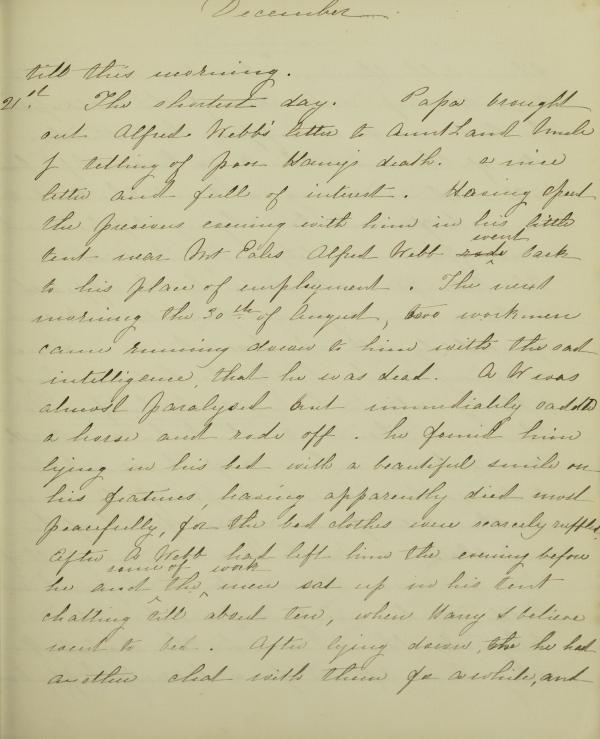 December
till this morning.
21st. The shortest day. Papa brought
out Alfred Webb's letter to Aunt L and Uncle
J telling of poor Harry's death. a nice
letter and full of interest. Having spent
the previous evening with him in his little
tent near Mt Eales Alfred Webb rode went back
to his place of employment. The next
morning the 30th of August, two workmen
came running down to him with the sad
intelligence, that he was dead. A W was
almost paralysed but immediately saddled
a horse and rode off. he found him
lying in his bed with a beautiful smile on
his features, having apparently died most
peacefully, for the bed clothes were scarcely ruffled.
After A Webb had left him the evening before
he and some of the work men sat up in his tent
chatting till about ten, when Harry I believe
went to bed. After lying down, the he had
another chat with them for a while, and